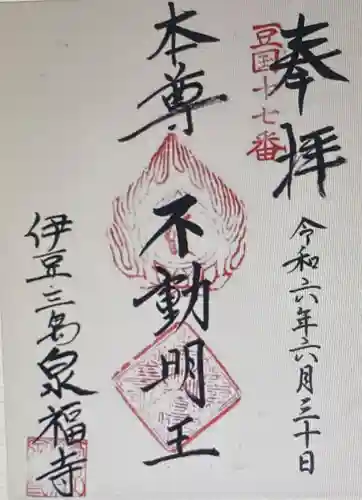 奉拝
豆国十七番
令和六年六月三十日
本尊
不動明王
伊豆三島泉福寺